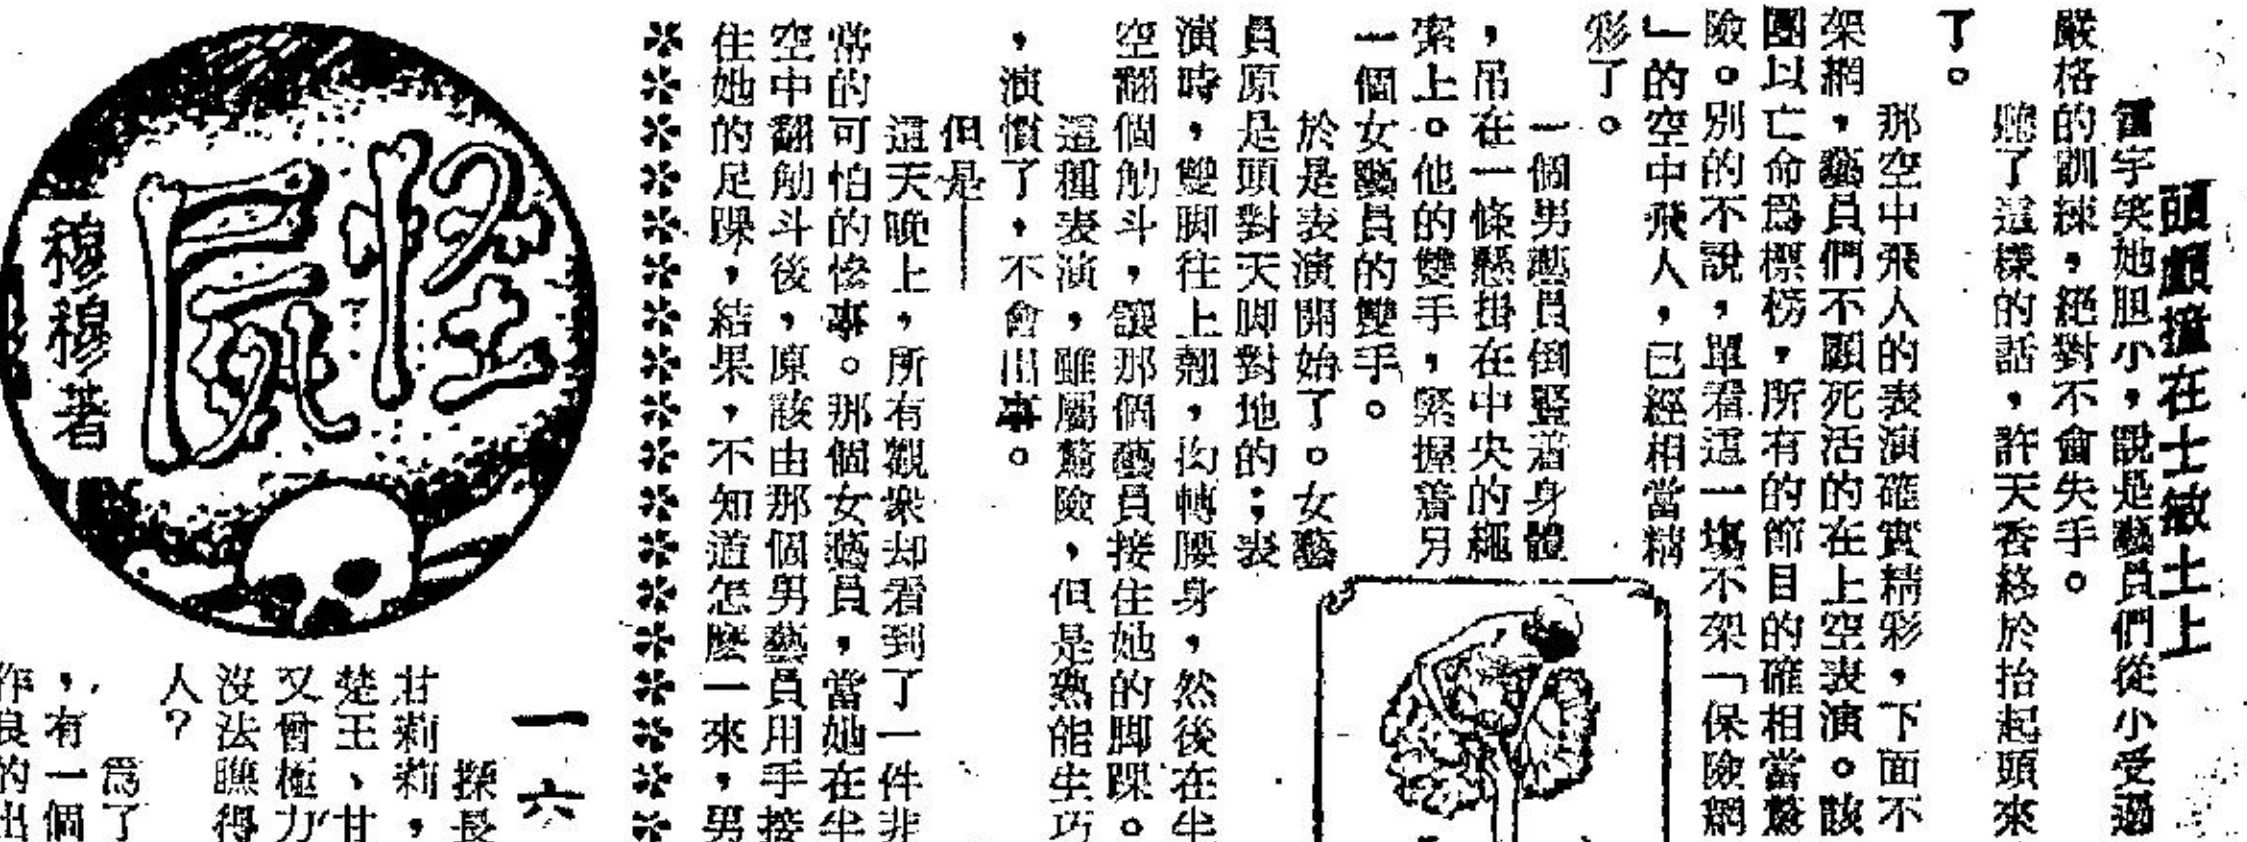 頭顱撞在士敏土上
雷宇笑她胆小，說是藝員們從小受過
嚴格的訓練，絕對不會失手。
聽了這樣的話，許天香終於抬起頭來
了。
那空中飛人的表演確實精彩，下面不
架網，藝員們不顧死活的在上空表演。該
團以亡命爲標榜，所有的節目的確相當驚
險。別的不說，單看這一塲不架「保險網
」的空中飛人，已經相當精
彩了。
一個男藝員倒豎着身體
，吊在一條懸掛在中央的繩
索上。他的雙手，緊握着另
一個女藝員的雙手。
於是表演開始了。女藝
員原是頭對天脚對地的；表
演時，雙脚往上翹，拗轉腰身，然後在半
空翻個觔斗，讓那個藝員接住她的脚踝。
這種表演，雖屬驚險，但是熟能生巧
，演慣了，不會出事。
但是——
這天晚上，所有觀衆却看到了一件非
常的可怕的慘事。那個女藝員，當她在半
空中翻觔斗後，原該由那個男藝員用手接
住她的足踝，結果，不知道怎麼一來，男
怪屍
穆穆著
一六
探長
甘莉莉，
楚王、甘
又曾極力
沒法瞧得
人？
爲了
，有一個
作良的出